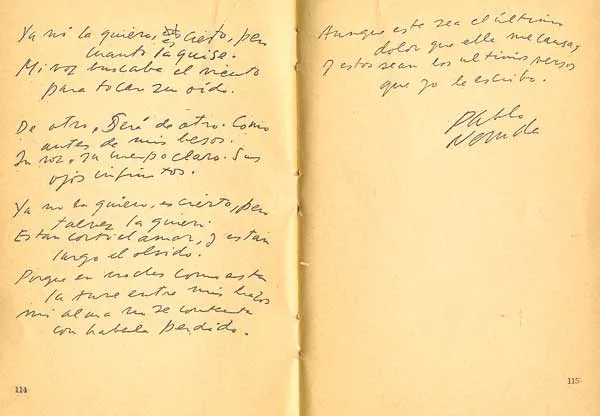 Ya no la quiero, es cierto, pero
cuanto la quise.
Mi voz buscaba el viento
para tocar su oído.
De otro, Será de otro. Como
antes de mis besos.
Su voz, su cuerpo claro. Sus
ojos infinitos.
Ya no la quiero, es cierto, pero
talvez la quiero.
Es tan corto el amor, y es tan
largo el olvido.
Porque en noches como esta
la tuve entre mis brazos
mi alma no se contenta
con haberla perdido.
114
Aunque este sea el último
dolor que ella me causa,
y estos sean los ultimos versos
que yo le escribo.
Pablo
Neruda
115